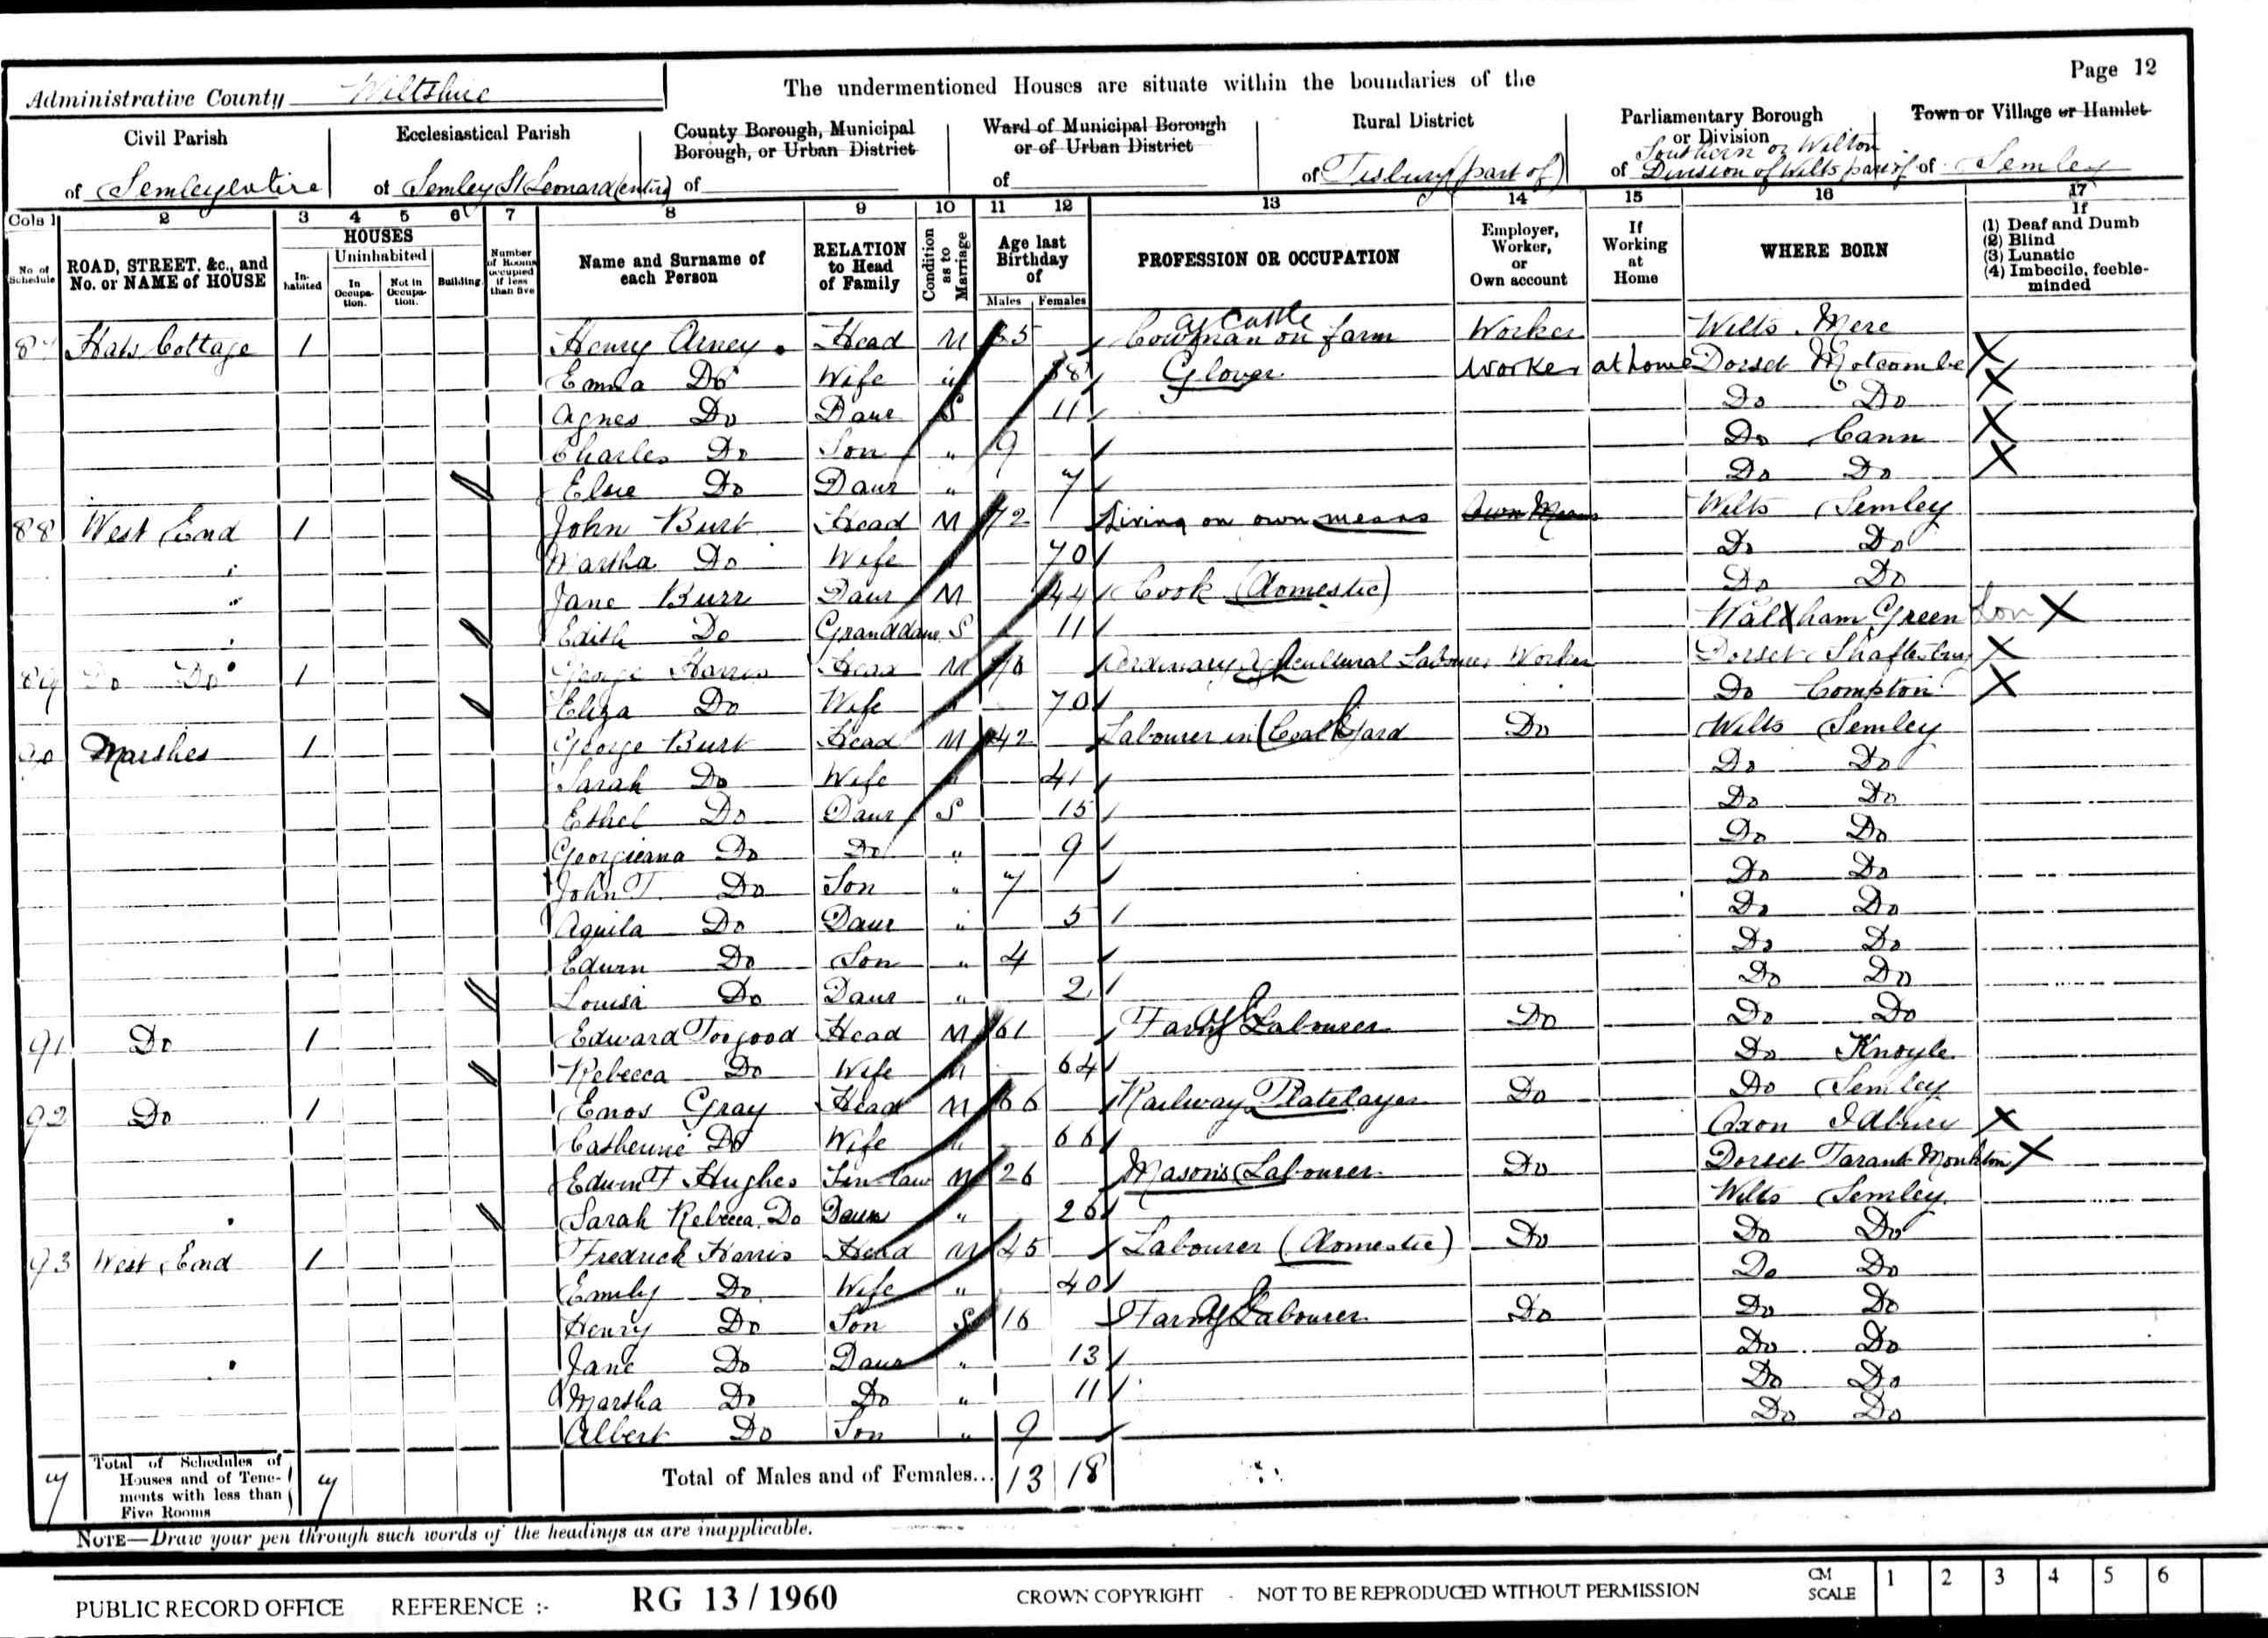 Page 12
Administrative County Wiltshire The undermentioned Houses are situate within the boundaries of the
Civil Parish Ecclesiastical Parish County Borough, Municipal Borough, or Urban District Ward of Municipal Borough or of Urban District Rural District Parliamentary Borough or Division Town or Village or Hamlet
of Semley entire of Semley St Leonard (entire) of of of Tisbury (part of) of Southern or Wilton Division of Wilts part of of Semley
Cols 1 2 3 4 5 6 7 8 9 10 11 12 13 14 15 16 17
No. of Schedule ROAD, STREET, &c., and No. or NAME of HOUSE HOUSES In-habited Uninhabited In Occupa-tion. Not in Occupa-tion. Building Number of Rooms occupied if less than five Name and Surname of each Person RELATION to Head of Family Condition as to Marriage Age last Birthday of Males Females PROFESSION OR OCCUPATION Employer, Worker, or Own account If Working at Home WHERE BORN If (1) Deaf and Dumb (2) Blind (3) Lunatic (4) Imbecile, feeble-minded
87 Hats Cottage 1 Henry Arney Head M Cowman on farm Cattle Worker Wilts Mere
Emma Do Wife Glover Worker at home Dorset Motcombe X
Agnes Do Daur S 11 Do Do X
Charles Do Son " 9 Do Cann X
Elsie Do Daur " 7 Do Do X
88 West End 1 John Burt Head M 72 Living on own means Own Means Wilts Semley
Martha Do Wife 70 Do Do
" Jane Burr Daur M 44 Cook (domestic) Do Do
Edith Do Granddaur S 11 Waltham Green Lon X
89 Do Do 1 George Harris Head M Ordinary Agricultural Labourer Worker Dorset Shaftesbury X
Eliza Do Wife 70 Do Compton X
90 Marshes 1 George Burt Head M 42 Labourer in Coal Yard Do Wilts Semley
Sarah Do Wife 41 Do Do
Ethel Do Daur S 15 Do Do
Georgieana Do Do " 9 Do Do
John T. Do Son " 7 Do Do
Aquila Do Daur " 5 Do Do
Edwin Do Son " 4 Do Do
Louisa Do Daur " 2 Do Do
91 Do 1 Edward Toogood Head M 61 Farm Labourer Do Do Do
Rebecca Do Wife 64 Do Knoyle
92 Do 1 Enos Gray Head M 66 Railway Platelayer Do Do Semley
Catherine Do Wife " 66 Oxon Idbury X
Edwin F Hughes Son-law M 26 Masons Labourer Do Dorset Tarant Monkton X
Sarah Rebecca Do Daur " 26 Wilts Semley
93 West End 1 Fredrick Harris Head M 45 Labourer (domestic) Do Do Do
Emily Do Wife " 40 Do Do
Henry Do Son S 16 Farm Labourer Do Do Do
Jane Do Daur " 13 Do Do
Martha Do Do " 11 Do Do
Albert Do Son " 9 Do Do
7 Total of Schedules of Houses and of Tene-ments with less than Five Rooms 7 Total of Males and of Females... 13 18
NOTE—Draw your pen through such words of the headings as are inapplicable.
PUBLIC RECORD OFFICE REFERENCE :- RG 13 / 1960 CROWN COPYRIGHT - NOT TO BE REPRODUCED WITHOUT PERMISSION CM SCALE 1 2 3 4 5 6